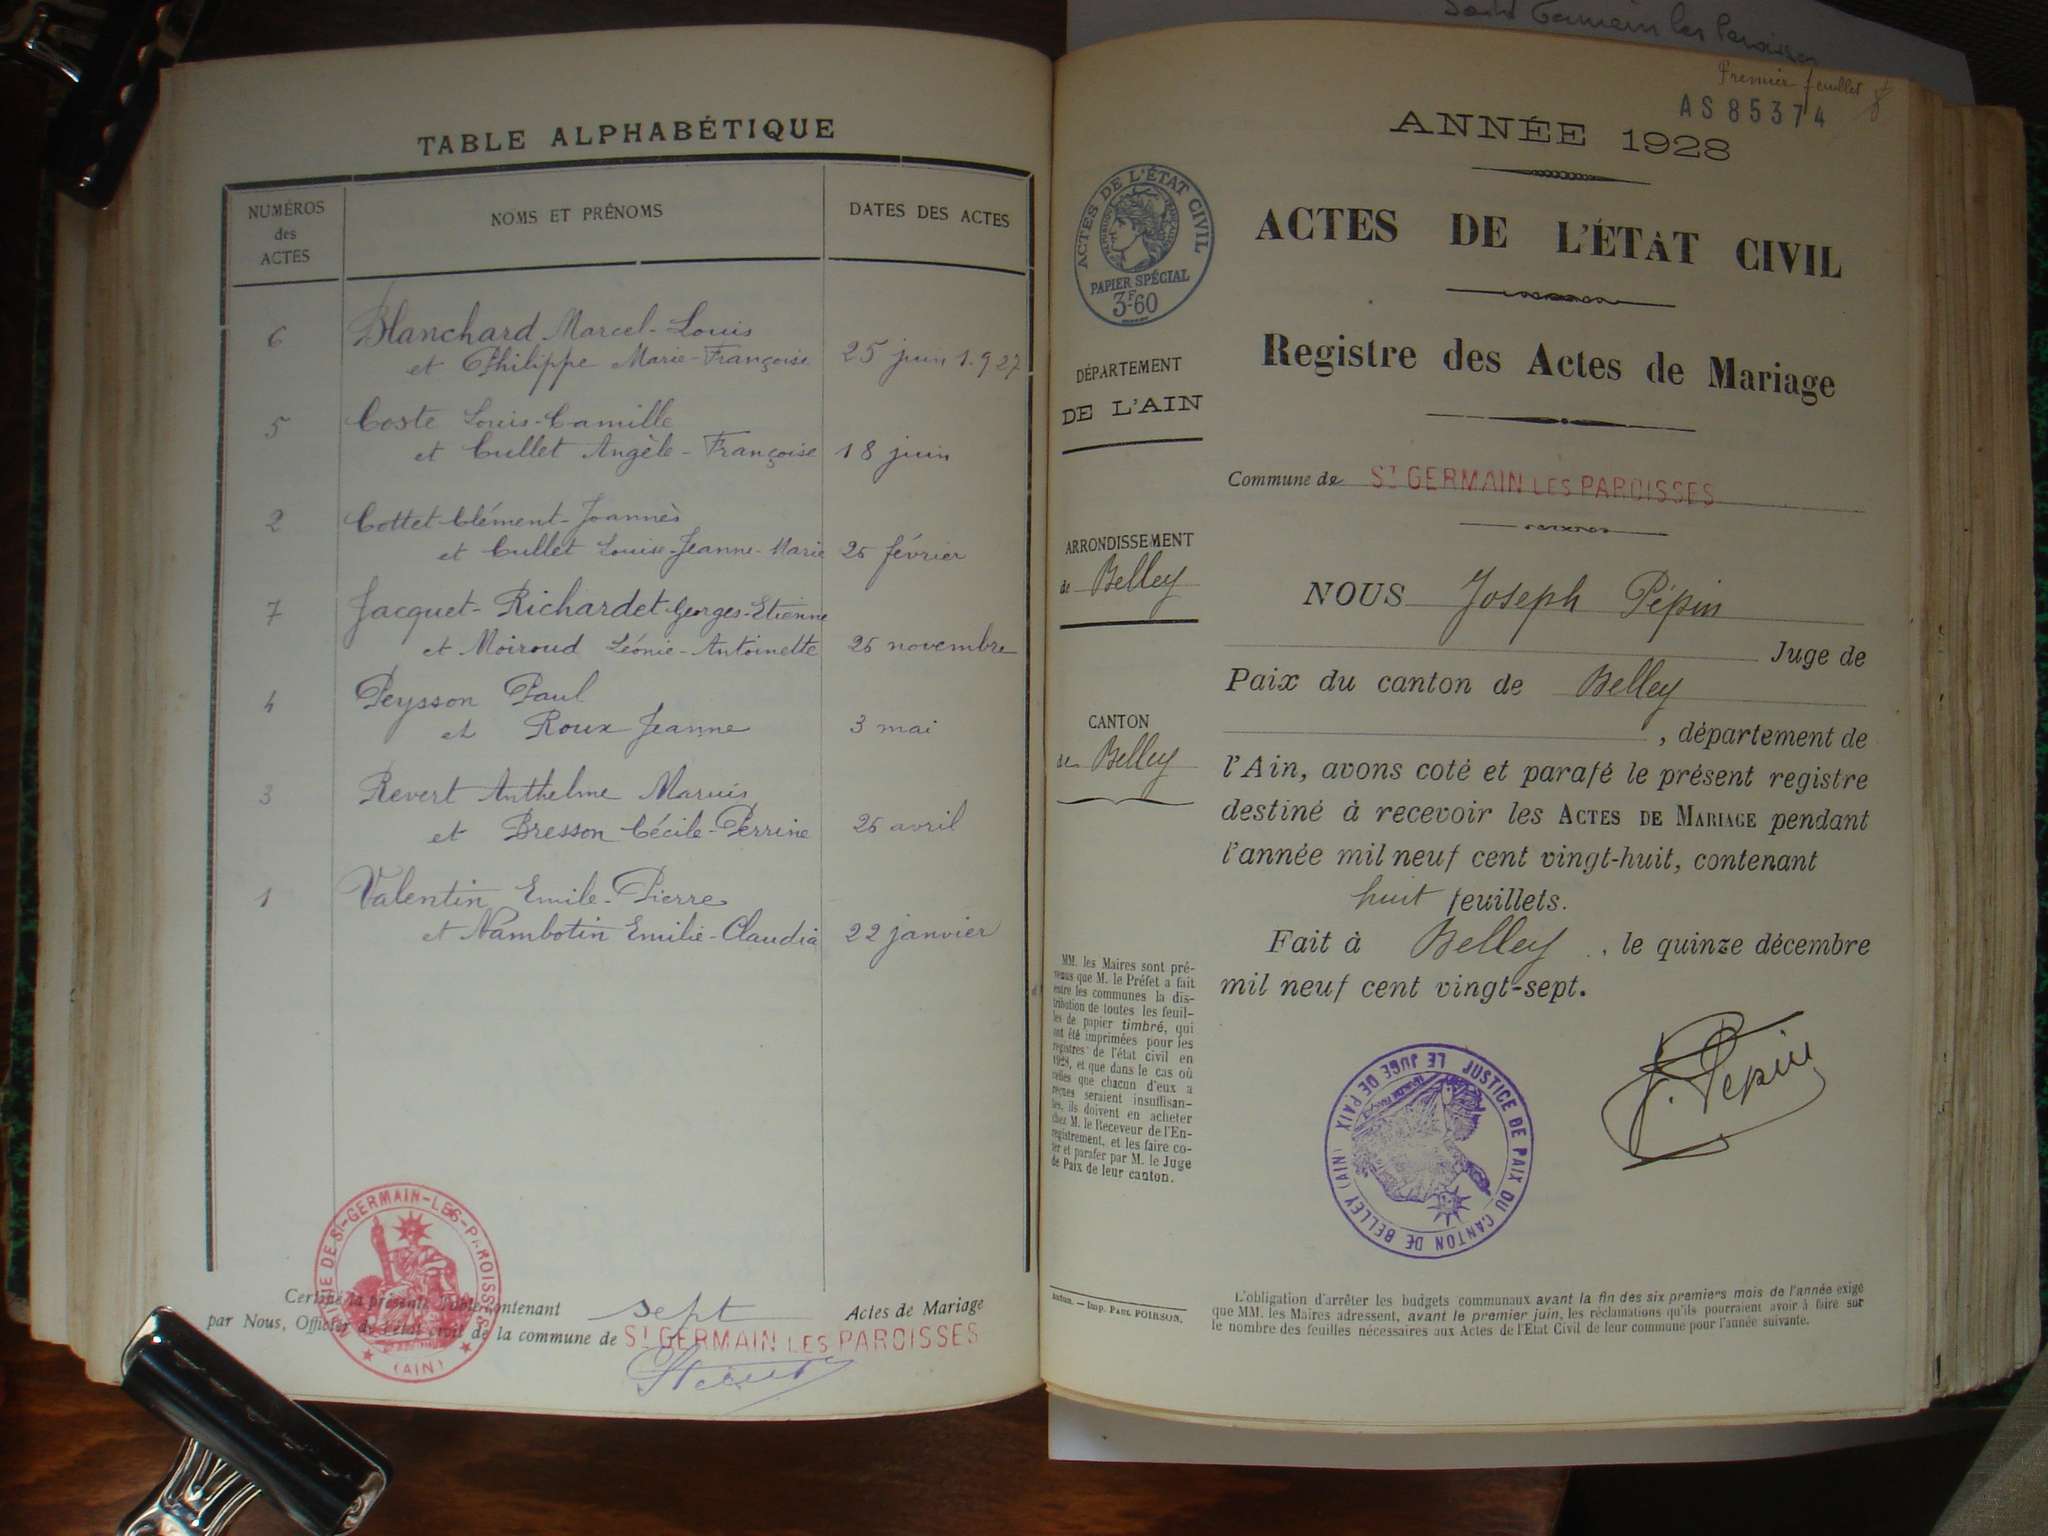 TABLE ALPHABÉTIQUE
NUMÉROS
des
ACTES
NOMS ET PRÉNOMS
DATES DES ACTES
6 Blanchard Marcel-Louis
et Philippe Marie-Françoise 25 juin 1.927
5 Coste Louis-Camille
et Cullet Angèle-Françoise 18 juin
2 Cottet Clément-Joannès
et Cullet Louise-Jeanne-Marie 26 février
7 Jacquet-Richardet Georges-Etienne
et Moiroud Léonie-Antoinette 26 novembre
4 Peysson Paul
et Roux Jeanne 3 mai
3 Revert Anthelme Marius
et Bresson Cécile-Perrine 26 avril
1 Valentin Emile-Pierre
et Nambotin Emilie-Claudia 22 janvier
MAIRIE DE ST-GERMAIN-LES-PAROISSES
(AIN)
Certifié la présente Table contenant sept Actes de Mariage
par Nous, Officier de l'état civil de la commune de ST GERMAIN LES PAROISSES
Saint Germain les Paroisses
Premier feuillet
AS 85374
ANNÉE 1928
ACTES DE L'ÉTAT CIVIL
PAPIER SPÉCIAL
3F-60
ACTES DE L'ÉTAT CIVIL
Registre des Actes de Mariage
DÉPARTEMENT
DE L'AIN
Commune de ST GERMAIN LES PAROISSES
ARRONDISSEMENT
de Belley
CANTON
de Belley
NOUS Joseph Pépin
Juge de
Paix du canton de Belley
, département de
l'Ain, avons coté et parafé le présent registre
destiné à recevoir les ACTES DE MARIAGE pendant
l'année mil neuf cent vingt-huit, contenant
huit feuillets.
Fait à Belley, le quinze décembre
mil neuf cent vingt-sept.
J. Pépin
JUSTICE DE PAIX DU CANTON DE BELLEY (AIN)
LE JUGE DE PAIX
MM. les Maires sont pré-
venus que M. le Préfet a fait
entre les communes la dis-
tribution de toutes les feuil-
les de papier timbré, qui
ont été imprimées pour les
registres de l'état civil en
1928, et que dans le cas où
celles que chacun d'eux a
reçues seraient insuffisan-
tes, ils doivent en acheter
chez M. le Receveur de l'En-
registrement, et les faire co-
ter et parafer par M. le Juge
de Paix de leur canton.
Imp. PAUL POIRSON.
L'obligation d'arrêter les budgets communaux avant la fin des six premiers mois de l'année exige
que MM. les Maires adressent, avant le premier juin, les réclamations qu'ils pourraient avoir à faire sur
le nombre des feuilles nécessaires aux Actes de l'Etat Civil de leur commune pour l'année suivante.